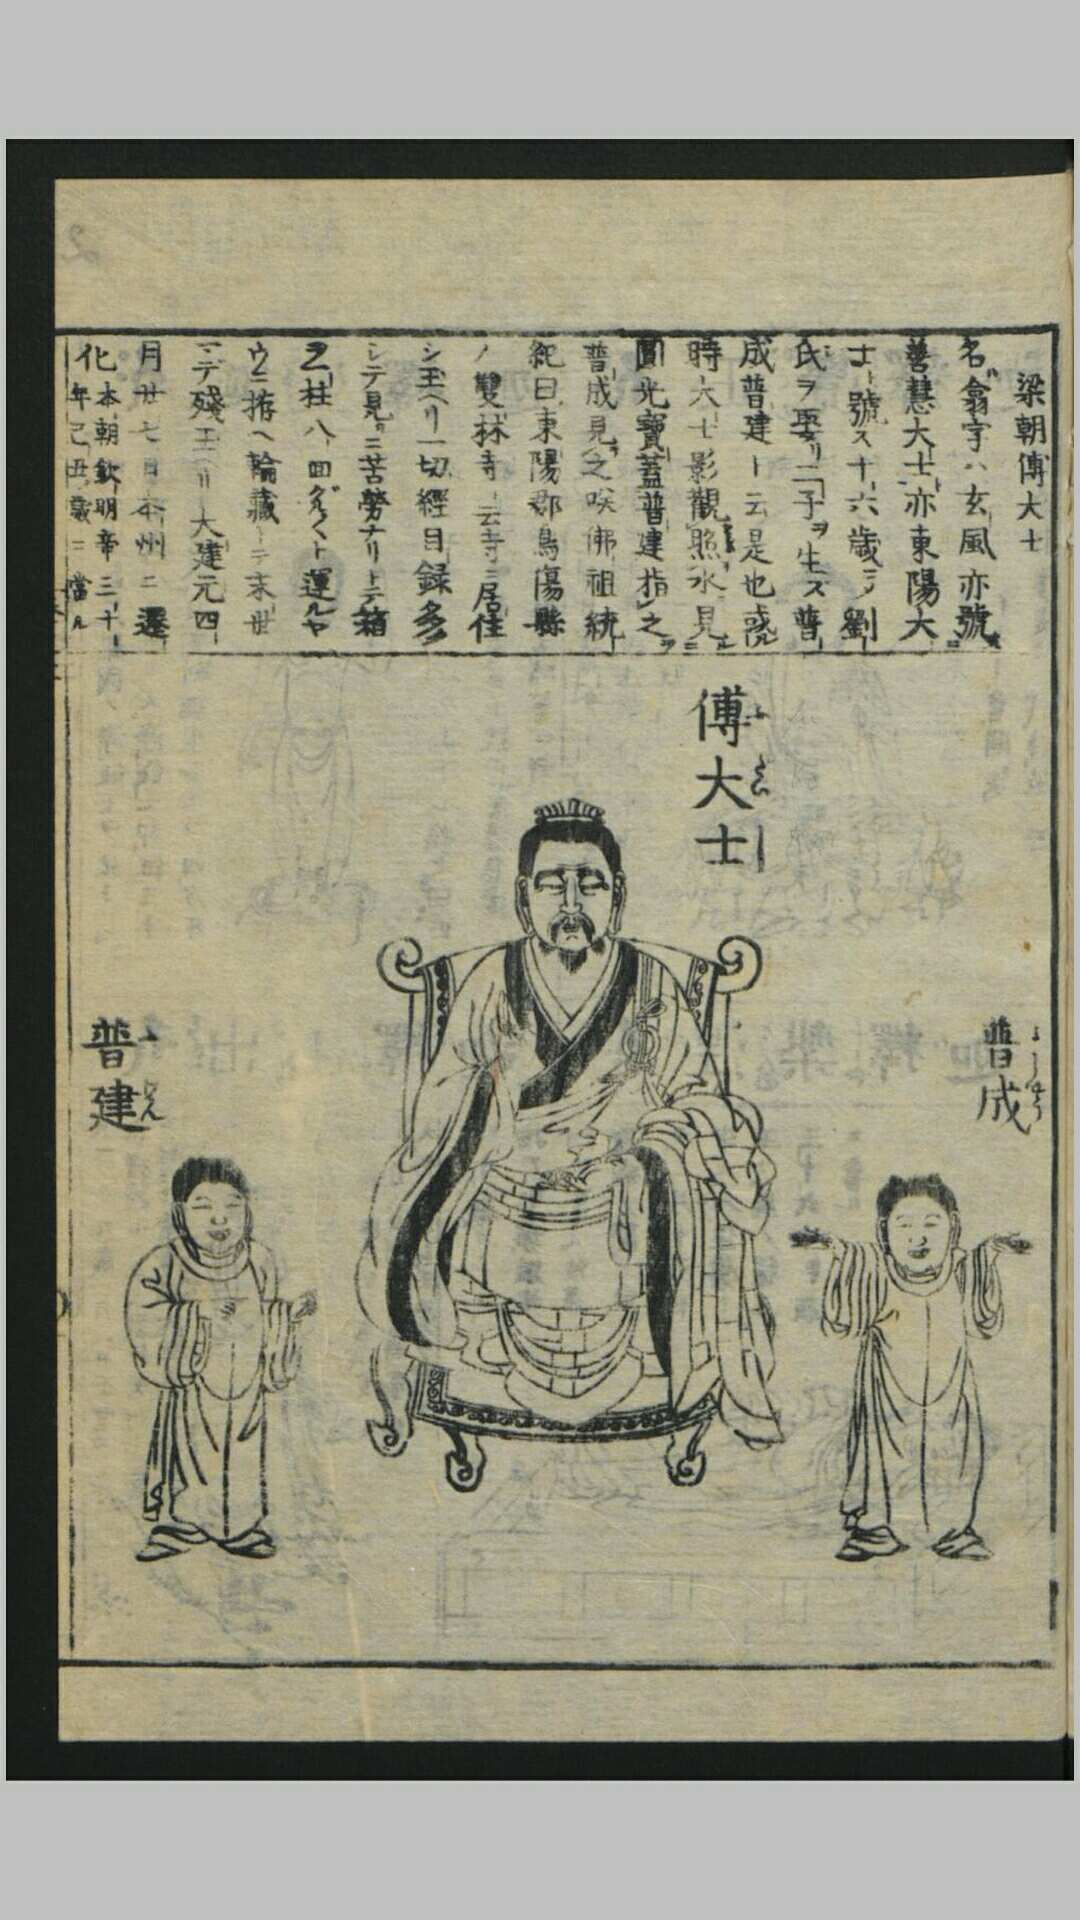 梁朝傅大士
名翕字ハ玄風亦號
善慧大士亦東陽大
士ト號ス十六歳ニテ劉
氏ヲ娶リ二子ヲ生ズ普
成普建ト云是也或
時大士影觀照水見
圓光寶蓋普建指之ヲ
普成見之咲佛祖統
紀曰東陽郡烏傷縣
ノ雙林寺ト云寺ニ居住
シ玉ヘリ一切經目録多
シテ見ルニ苦勞ナリトテ箱
ヲ柱八面グル〱ト運ルヤ
ウニ拵ヘ輪藏トテ末世
マデ殘玉ヘリ大建元四
月廿七日本州ニ遷
化本朝欽明帝三十
年己丑歳ニ當ル
傅大士
ふたいし
普成
ふじやう
普建
ふけん